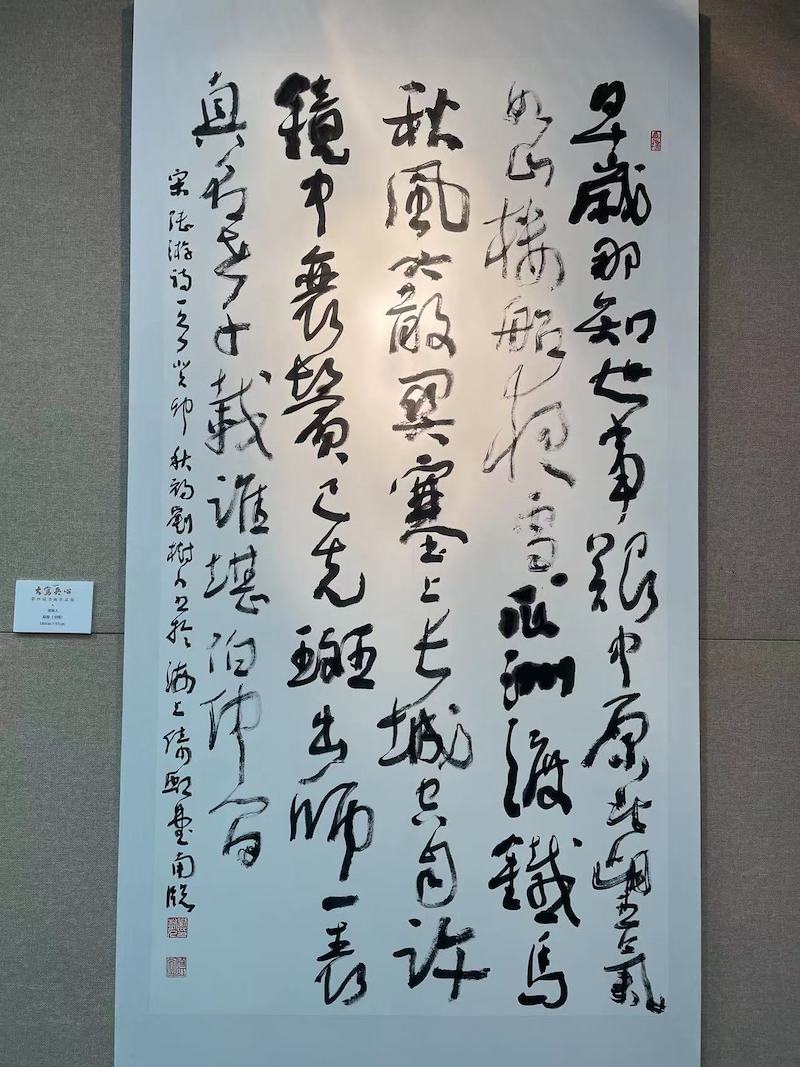 早歲那知世事艱中原北望氣
如山樓船夜雪瓜洲渡鐵馬
秋風大散關塞上長城空自許
鏡中衰鬢已先斑出師一表
真名世千載誰堪伯仲間
宋陸游詩一首癸卯秋初劉樹人書於海上倚熙臺南牕